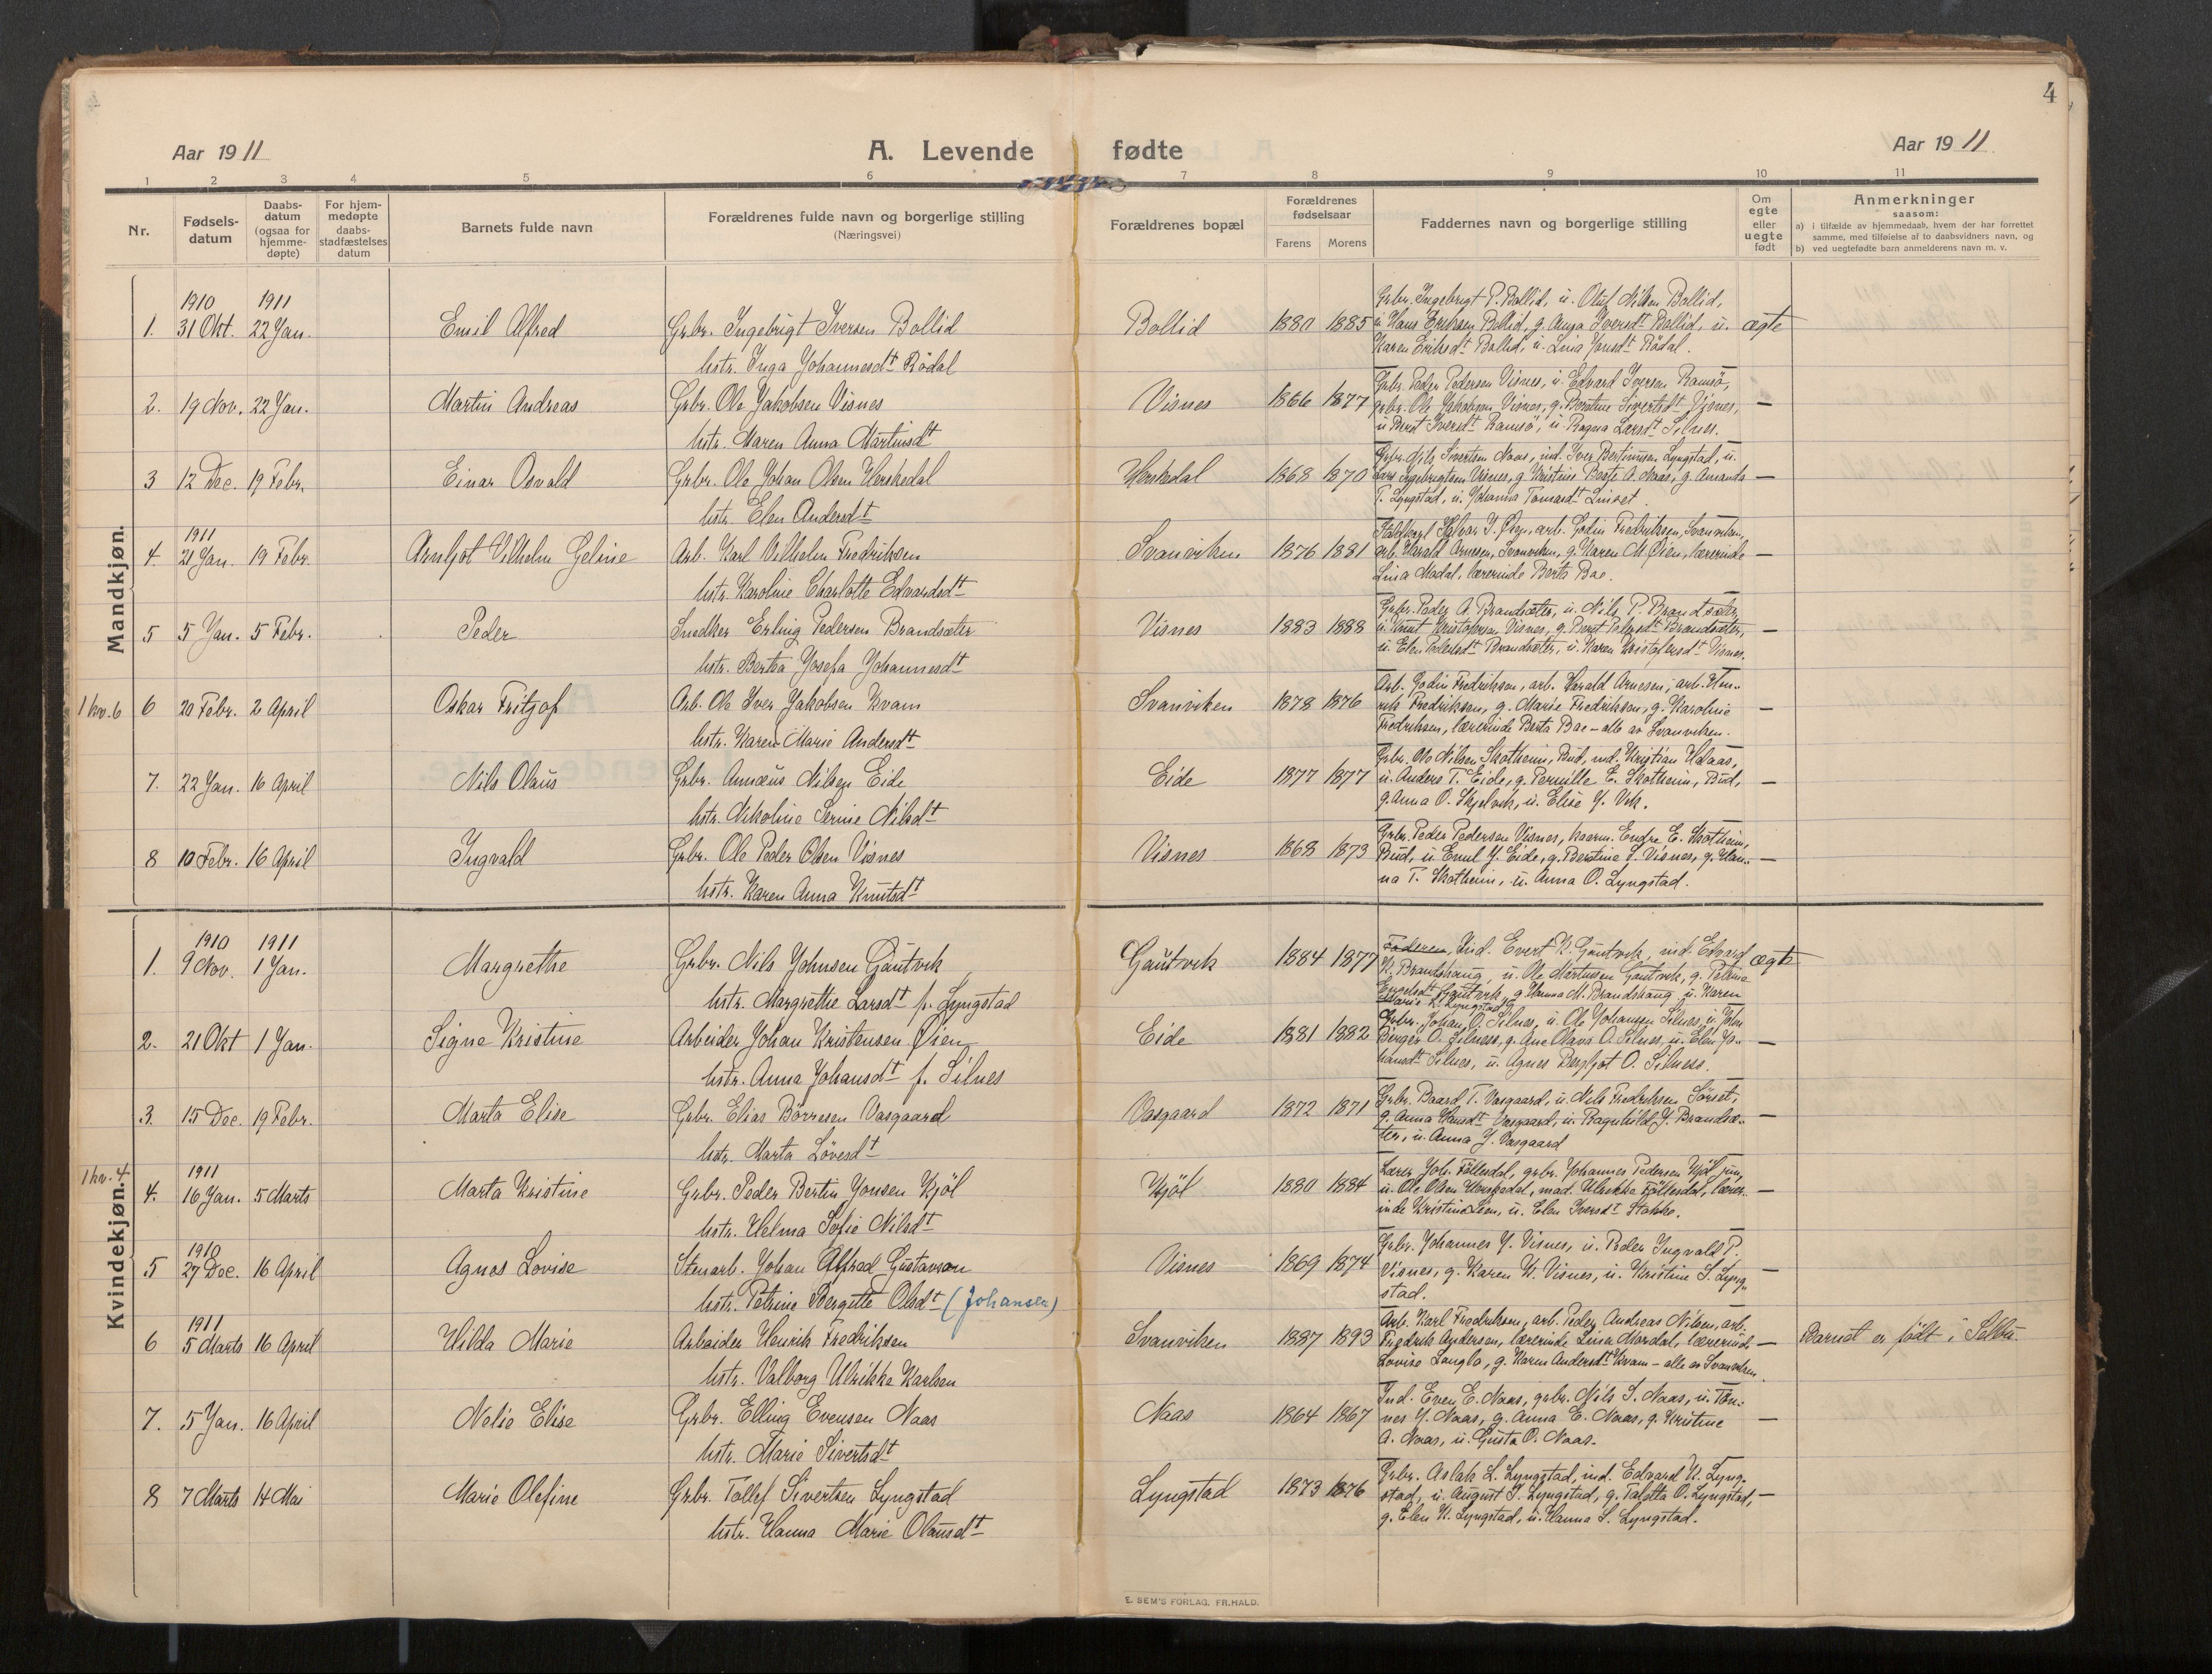 4
Aar 1911
A. Levende fødte
Aar 1911
1 2 3 4 5 6 7 8 9 10 11
Nr.
Fødsels-
datum
Daabs-
datum
(ogsaa for
hjemme-
døpte)
For hjem-
medøpte
daabs-
stadfæstelses
datum
Barnets fulde navn
Forældrenes fulde navn og borgerlige stilling
(Næringsvei)
Forældrenes bopæl
Forældrenes
fødselsaar
Farens Morens
Faddernes navn og borgerlige stilling
Om
egte
eller
uegte
født
Anmerkninger
saasom:
a) i tilfælde av hjemmedaab, hvem der har forrettet
samme, med tilføielse af to daabsvidners navn, og
b) ved uegtefødte barn anmelderens navn m. v.
Mandkjøn.
1910 1911
1. 31 Okt. 22 Jan. Emil Alfred Grbr. Ingebrigt Iversen Bollid
hstr. Inga Johannesdt Rødal
Bollid 1880 1885 ægte
Grbr. Ingebrigt P. Bollid, u. Oluf Nilsen Bollid,
u. Hans Eriksen Bollid, g. Anna Iversdt Bollid, u.
Karen Eriksdt Bollid, u. Lina Jonsdt Rødal.
2. 19 Nov. 22 Jan. Martin Andreas Grbr. Ole Jakobsen Visnes
hstr. Maren Anna Martinsdt
Visnes 1866 1877 —
Grbr. Peder Pedersen Visnes, u. Edvard Iversen Ramsø,
grbr. Ole Jakobsen Visnes, g. Berstine Sivertsdt Visnes,
u. Berit Iversdt Ramsø, u. Ragna Larsdt Silnes.
3 12 Dec. 19 Febr. Einar Osvald Grbr. Ole Johan Olsen Herskedal
hstr. Elen Andersdt
Herskedal 1868 1870 —
Grbr. Nils Sivertsen Naas, ind. Iver Bertinusen Lyngstad, u.
Lars Ingebrigtsen Visnes, g. Kristine Berte A. Naas, g. Amanda
T. Lyngstad, u. Johanna Linset.
1911
4. 21 Jan. 19 Febr. Arnljot Vilhelm Geline Arb. Karl Vilhelm Fredriksen
hstr. Karoline Charlotte Edvardsdt
Svanviken 1876 1881 —
Halvar J. Øien, arb. Godin Fredriksen, Svanviken,
arb. Harald Arnesen, Svanviken, g. Karen M. Øien, lærerinde
Lina Madal, lærerinde Berta Bae.
5 5 Jan. 5 Febr. Peder Snedker Erling Pedersen Brandsæter
hstr. Bertea Josefa Johannesdt
Visnes 1883 1888 —
Grbr. Peder A. Brandsæter, u. Nils P. Brandsæter,
u. Knut Kristofersen Visnes, g. Berit Pedersdt Brandsæter,
u. Elen Pedersdt Brandsæter, u. Karen Kristofersdt Visnes.
1 hv. 6 6 20 Febr. 2 April Oskar Fritjof Arb. Ole Iver Jakobsen Kvam
hstr. Karen Marie Andersdt
Svanviken 1878 1876 —
Arb. Godin Fredriksen, arb. Harald Arnesen, arb. Hen-
rik Fredriksen, g. Marie Fredriksen, g. Karoline
Fredriksen, lærerinde Berta Bae – alle av Svanviken.
7. 22 Jan. 16 April Nils Olaus Grbr. Annæus Nilsen Eide
hstr. Nikoline Serine Nilsdt
Eide 1877 1877 —
Grbr. Ole Nilsen Skotheim, Bud, ind. Kristian Udaas,
u. Anders T. Eide, g. Pernille E. Skotheim, Bud,
g. Anna O. Skjelvik, u. Elise J. Vik.
8 10 Febr. 16 April Ingvald Grbr. Ole Peder Olsen Visnes
hstr. Karen Anna Knutsdt
Visnes 1868 1873 —
Grbr. Peder Pedersen Visnes, kaarm. Endre E. Skotheim,
Bud, u. Emil J. Eide, g. Berstine S. Visnes, g. Han-
na T. Skotheim, u. Anna O. Lyngstad.
Kvindekjøn.
1910 1911
1. 9 Nov. 1 Jan. Margrethe Grbr. Nils Johnsen Gautvik
hstr. Margrethe Larsdt f. Lyngstad
Gautvik 1884 1877 ægte
Faderen, Ind. Evert K. Gautvik, ind. Edvard
N. Brandshaug, u. Ole Martinsen Gautvik, g. Petrina
Engelsdt Gautvik, g. Hanna M. Brandshaug, u. Karen
Marie L. Lyngstad
2. 21 Okt 1 Jan. Signe Kristine Arbeider Johan Kristensen Øien
hstr. Anna Johansdt f. Silnes
Eide 1881 1882 —
Grbr. Johan O. Silnes, u. Ole Johansen Silnes, u. John
Birger O. Silness, g. Ane Olava O. Silnes, u. Elen Jo-
hansdt Silnes, u. Agnes Bergljot O. Silness.
3. 15 Dec. 19 Febr. Marta Elise Grbr. Elias Børresen Vasgaard
hstr. Marta Løvesdt
Vasgaard 1872 1871 —
Grbr. Baard T. Vasgaard, u. Nils Fredriksen Sørset,
g. Anna Hansdt Vasgaard, u. Ragnhild J. Brandsæ-
ter, u. Anna J. Vasgaard
1911
1 hv. 4 4. 16 Jan. 5 Marts Marta Kristine Grbr. Peder Bertin Jonsen Kjøl
hstr. Helma Sofie Nilsdt
Kjøl 1880 1884 —
Lærer Joh. Tøllesdal, grbr. Johannes Pedersen Kjøl jun,
u. Ole Olsen Herskedal, mad. Ulrikke Tøllesdal, lærer-
inde Kristine Lien, u. Elen Iversdt Stokke.
1910
5 27 Dec. 16 April Agnes Lovise Stenarb. Johan Alfred Gustavson
hstr. Petrine Bergitte Olsdt (Johansen)
Visnes 1869 1874 —
Grbr. Johannes J. Visnes, u. Peder Ingvald P.
Visnes, g. Karen K. Visnes, u. Kristine S. Lyng-
stad.
1911
6 5 Marts 16 April Hilda Marie Arbeider Henrik Fredriksen
hstr. Valborg Ulrikke Karlsen
Svanviken 1887 1893 — Barnet er født i Selbu.
Arb. Karl Fredriksen, arb. Peder Andreas Nilsen, arb.
Fredrik Andersen, lærerinde Lina Mardal, lærerinde
Lovise Langlo, g. Karen Andersdt Kvam – alle av Svanviken.
7. 5 Jan. 16 April Nelie Elise Grbr. Elling Evensen Naas
hstr. Marie Sivertsdt
Naas 1864 1867 —
Ind. Even E. Naas, grbr. Nils S. Naas, u. Tøn-
nes J. Naas, g. Anna E. Naas, g. Kristine
A. Naas, u. Gusta O. Naas.
8 7 Marts 14 Mai Marie Olefine Grbr. Tollef Sivertsen Lyngstad
hstr. Hanna Marie Olausdt
Lyngstad 1873 1876 —
Grbr. Aslak L. Lyngstad, ind. Edvard K. Lyng-
stad, u. August S. Lyngstad, g. Taletta O. Lyngstad,
g. Elen K. Lyngstad, u. Hanna S. Lyngstad.
E. SEM'S FORLAG. FR.HALD.